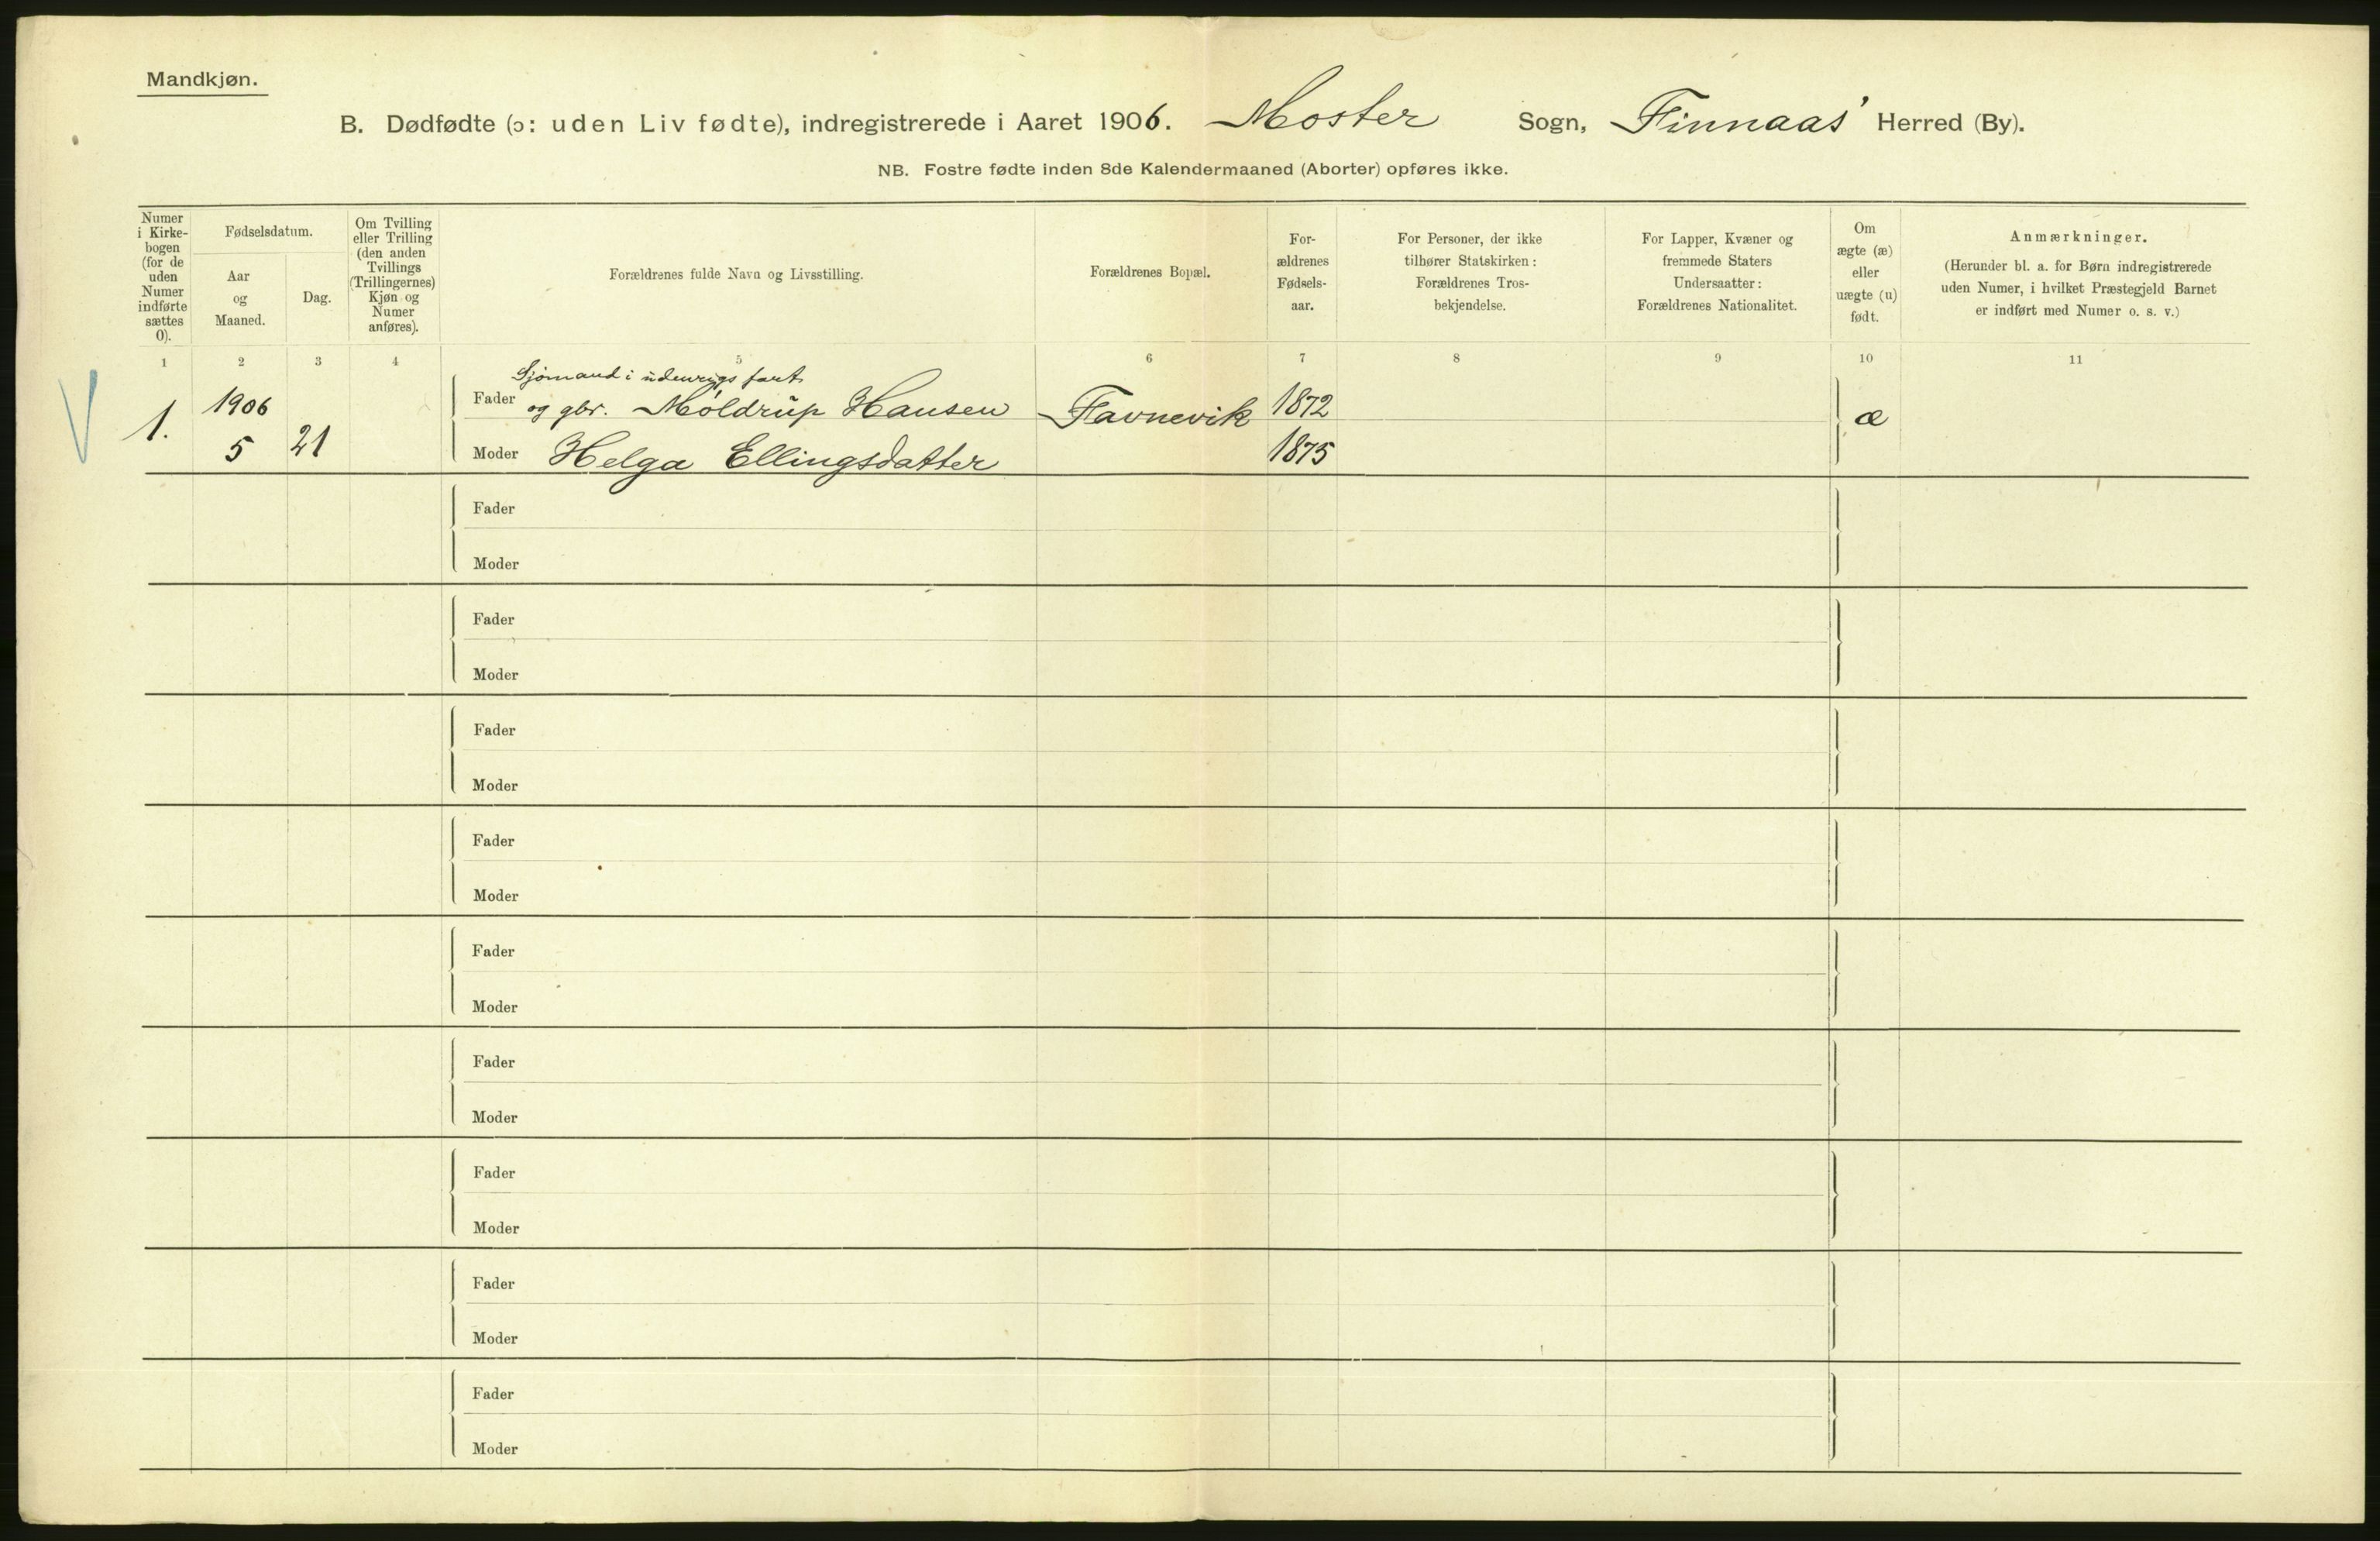 Mandkjøn.
B. Dødfødte (ɔ: uden Liv fødte), indregistrerede i Aaret 1906. Moster Sogn, Finnaas' Herred (By).
NB. Fostre fødte inden 8de Kalendermaaned (Aborter) opføres ikke.
Numer
i Kirke-
bogen
(for de
uden
Numer
indførte
sættes
0).
Fødselsdatum.
Aar
og
Maaned.
Dag.
Om Tvilling
eller Trilling
(den anden
Tvillings
(Trillingernes)
Kjøn og
Numer
anføres).
Forældrenes fulde Navn og Livsstilling.
Forældrenes Bopæl.
For-
ældrenes
Fødsels-
aar.
For Personer, der ikke
tilhører Statskirken:
Forældrenes Tros-
bekjendelse.
For Lapper, Kvæner og
fremmede Staters
Undersaatter:
Forældrenes Nationalitet.
Om
ægte (æ)
eller
uægte (u)
født.
Anmærkninger.
(Herunder bl. a. for Børn indregistrerede
uden Numer, i hvilket Præstegjeld Barnet
er indført med Numer o. s. v.)
1 2 3 4 5 6 7 8 9 10 11
Sjømand i udenrigs fart
1. 1906 Fader og gbr. Møldrup Hansen Favnevik 1872 æ
5 21 Moder Helga Ellingsdatter 1875
Fader
Moder
Fader
Moder
Fader
Moder
Fader
Moder
Fader
Moder
Fader
Moder
Fader
Moder
Fader
Moder
Fader
Moder